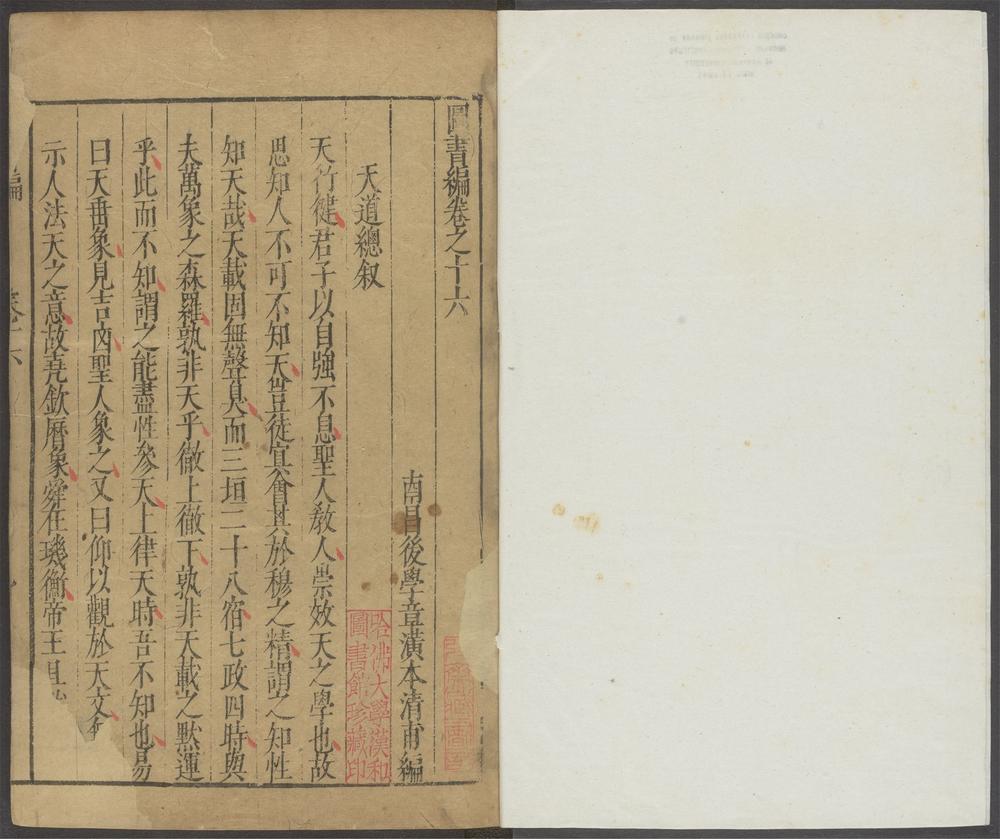 圖書編卷之十六
南昌後學章潢本清甫編
天道總叙
天行健君子以自強不息聖人敎人崇效天之學也故
思知人不可不知天豈徒冥會其於穆之精謂之知性
知天哉天載固無聲臭而三垣二十八宿七政四時與
夫萬象之森羅孰非天乎徹上徹下孰非天載之默運
乎此而不知謂之能盡性參天上律天時吾不知也易
曰天垂象見吉凶聖人象之又曰仰以觀於天文
示人法天之意故堯欽曆象舜在璣衡帝王且
編
哈佛大學漢和
圖書館珍藏印